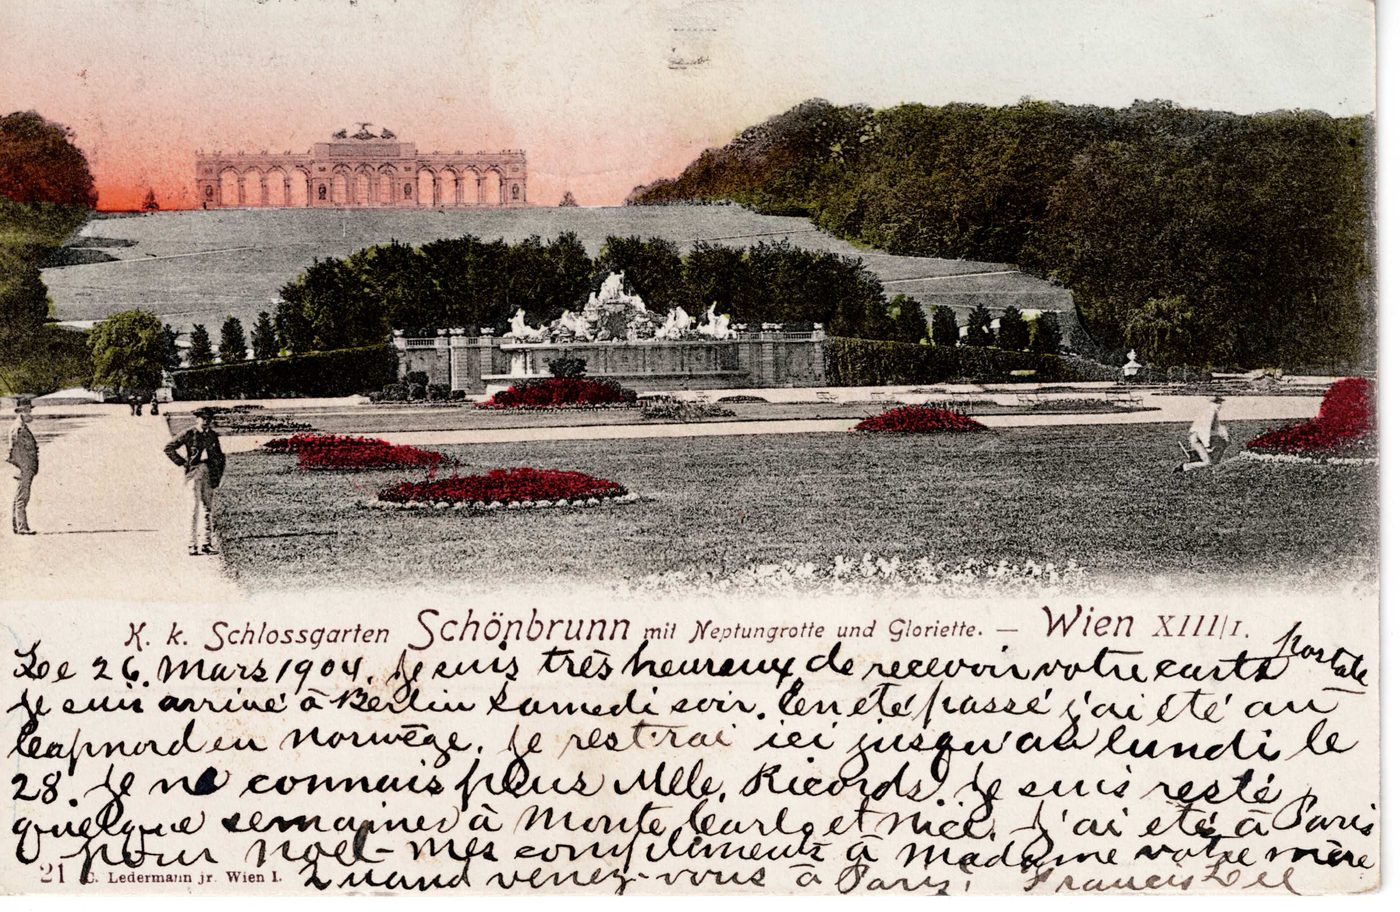 K. k. Schlossgarten Schönbrunn mit Neptungrotte und Gloriette. — Wien XIII/1.
Le 26. Mars 1904. Je suis très heureux de recevoir votre carte postale
Je suis arrivé à Berlin Samedi soir. En été passé j'ai été au
Capnord en Norwēge. Je restrai ici jusqu'au lundi le
28. Je ne connais plus Mlle. Ricords. Je suis resté
quelque semaines à Monte Carlo et Nice. J'ai été à Paris
pour Noël - mes compliments à Madame votre mère
Quand venez-vous à Paris! Francis Lee
21 C. Ledermann jr. Wien I.